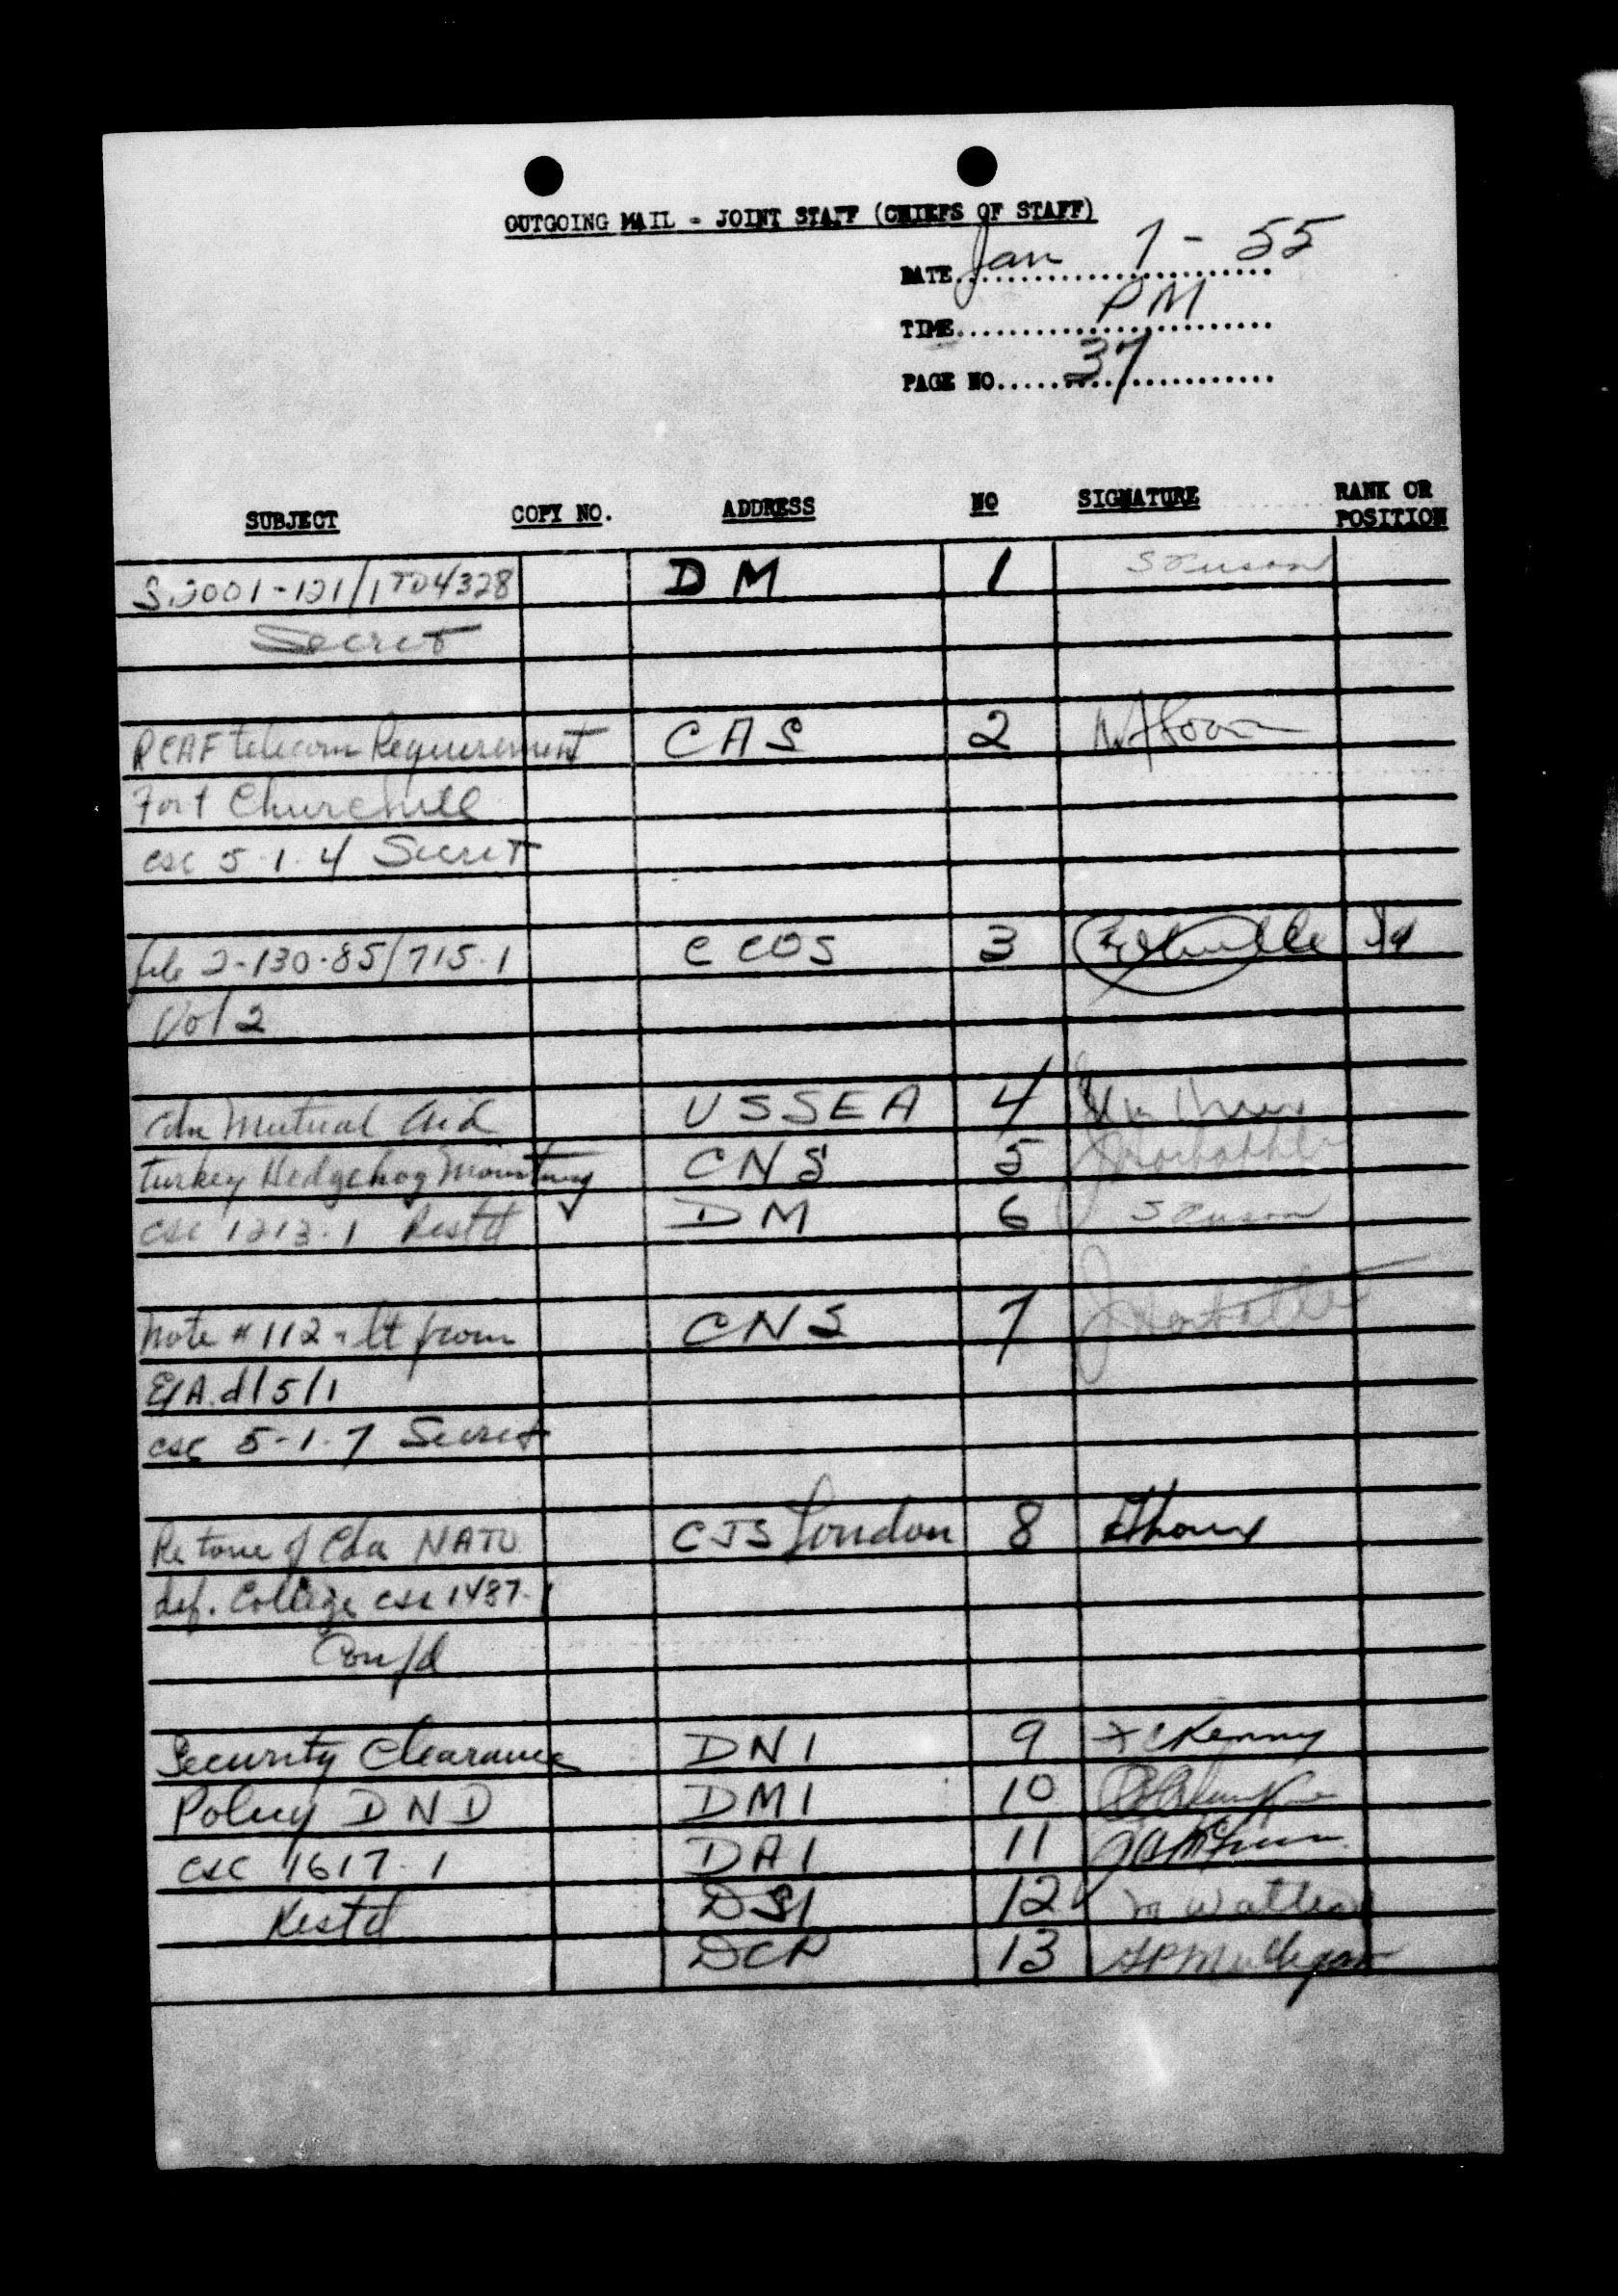 OUTGOING MAIL - JOINT STAFF (CHIEFS OF STAFF)
DATE Jan 7 - 55
TIME PM
PAGE NO 37
SUBJECT COPY NO. ADDRESS NO SIGNATURE RANK OR POSITION
S.2001-121/1 TD4328 DM 1
Secret
RCAF telecom Requirement CAS 2
Fort Churchill
csc 5-1-4 Secret
file 2-130-85/715-1 CCOS 3
Vol 2
Cdn Mutual Aid USSEA 4
Turkey Hedgehog Mounting CNS 5
csc 1213-1 Restd ✓ DM 6
Note # 112 - lt from CNS 7
E/A. d/5/1
csc 5-1-7 Secret
Re tour of Cda NATO CJS London 8
def. College csc 1487-1
Conf/d
Security Clearance DNI 9
Policy DND DMI 10
csc 1617-1 DAI 11
Restd DSI 12
DCP 13 Mulligan